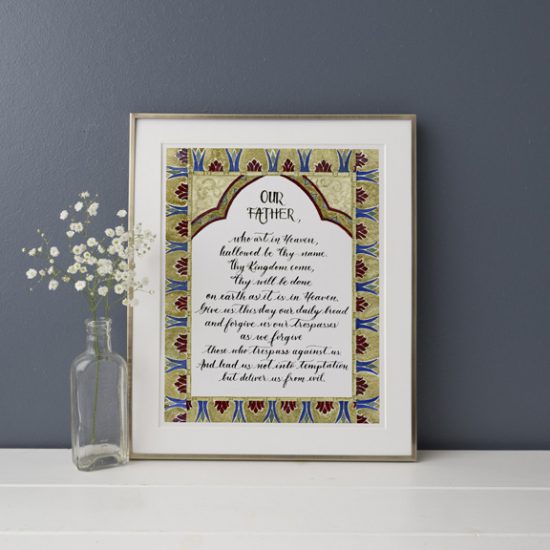 OUR
FATHER,
who art in Heaven,
hallowed be Thy name.
Thy Kingdom come,
Thy will be done
on earth as it is in Heaven.
Give us this day our daily bread
and forgive us our trespasses
as we forgive
those who trespass against us
And lead us not into temptation
but deliver us from evil.